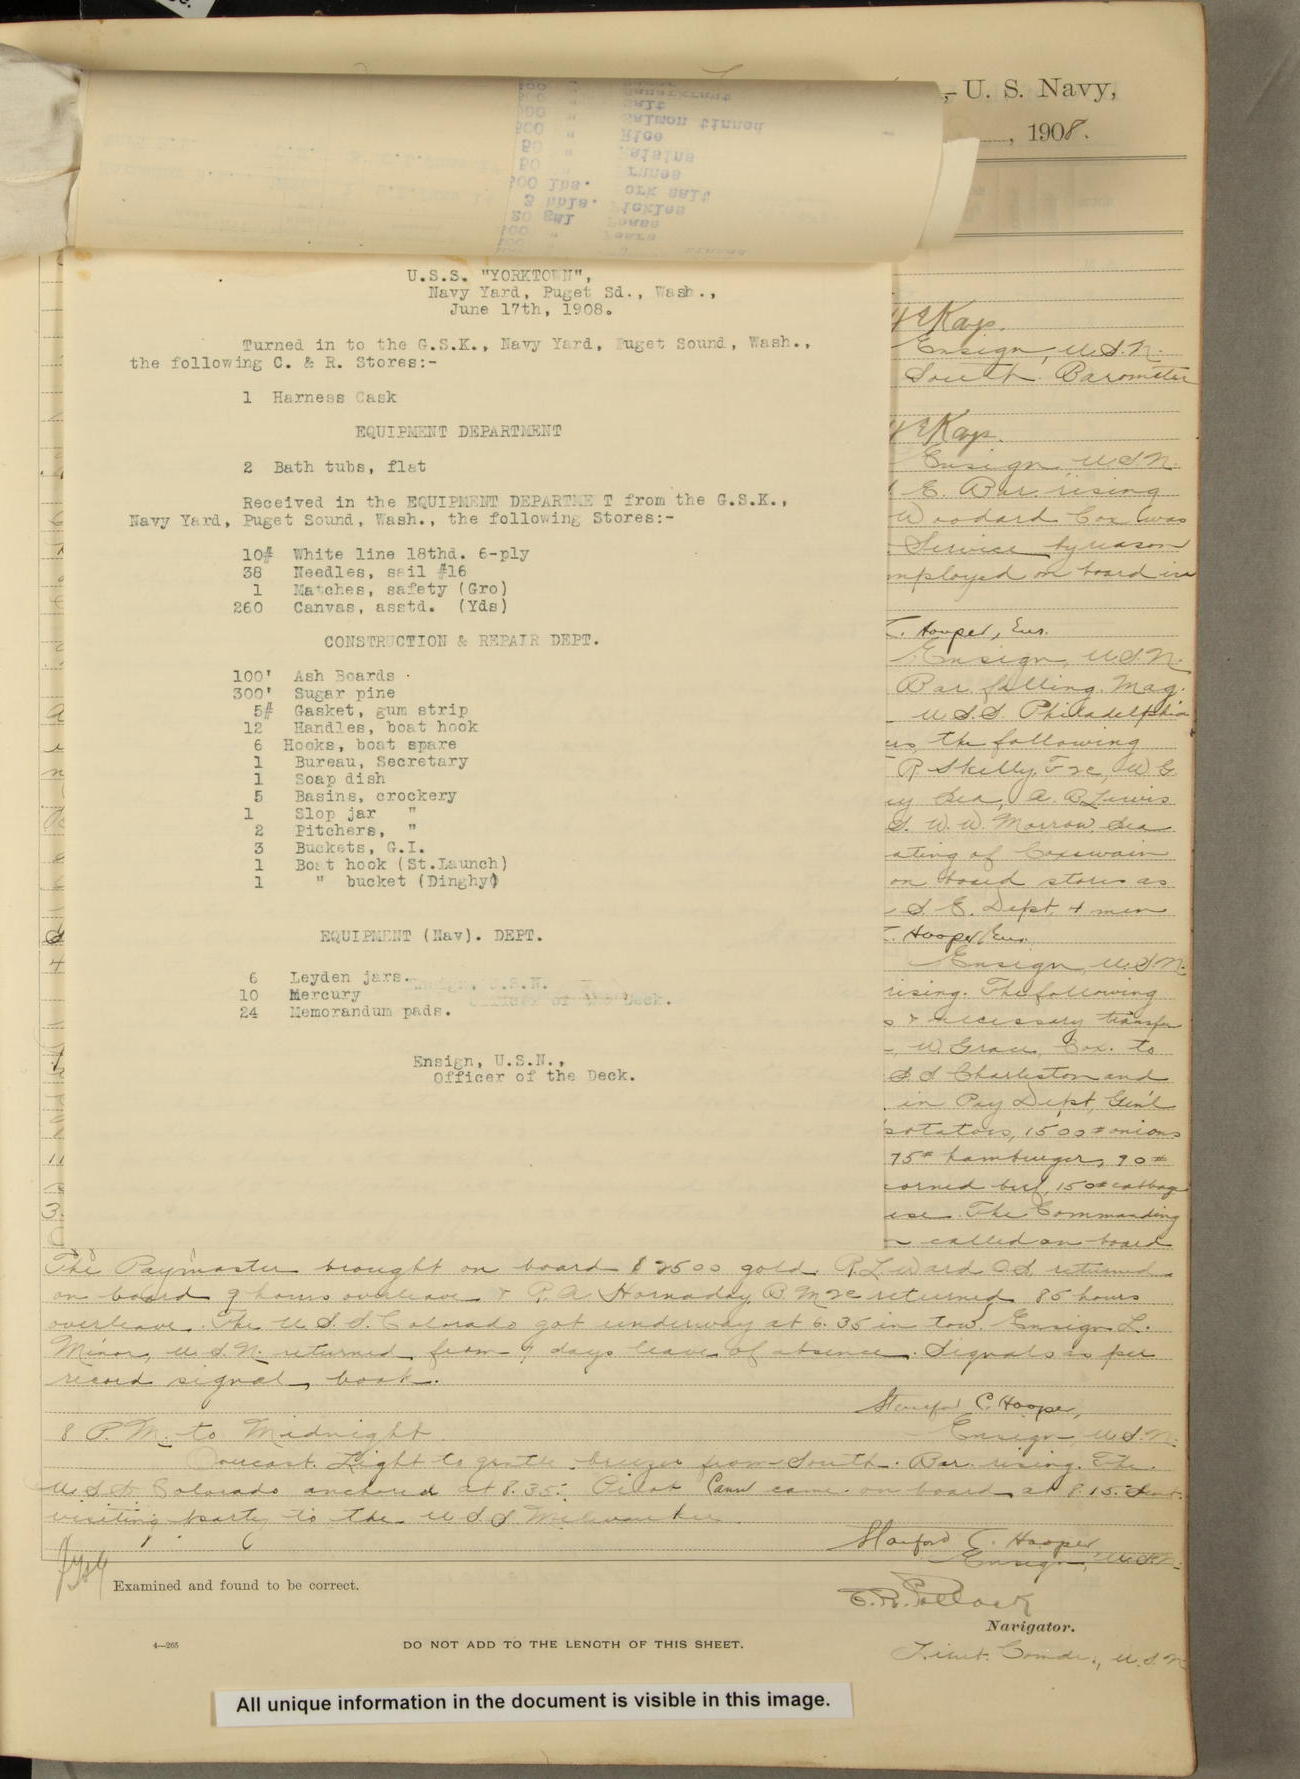 U. S. Navy,
, 1908.
Salt
Salmon tinned
Rice
Raisins
100 lbs. ork salt
3 bbls. Pickles
20 gal
U.S.S. "YORKTOWN",
Navy Yard, Puget Sd., Wash.,
June 17th, 1908.
Turned in to the G.S.K., Navy Yard, Puget Sound, Wash.,
the following C. & R. Stores:-
1 Harness Cask
EQUIPMENT DEPARTMENT
2 Bath tubs, flat
Received in the EQUIPMENT DEPARTME T from the G.S.K.,
Navy Yard, Puget Sound, Wash., the following Stores:-
10# White line 18thd. 6-ply
38 Needles, sail #16
1 Matches, safety (Gro)
260 Canvas, asstd. (Yds)
CONSTRUCTION & REPAIR DEPT.
100' Ash Boards
300' Sugar pine
5# Gasket, gum strip
12 Handles, boat hook
6 Hooks, boat spare
1 Bureau, Secretary
1 Soap dish
5 Basins, crockery
1 Slop jar "
2 Pitchers, "
3 Buckets, G.I.
1 Boat hook (St.Launch)
1 " bucket (Dinghy)
EQUIPMENT (Nav). DEPT.
6 Leyden jars.
10 Mercury
24 Memorandum pads.
Ensign, U.S.N.,
Officer of the Deck.
Ensign, U.S.N.
South. Barometer
Ensign U.S.N.
E. Bar. rising
Woodard Cox (was
Service by reason
mployed on board in
. Hooper, Ens.
Ensign, U.S.N.
Bar. falling. Mag.
U.S.S. Philadelphia
the following
R Skelly F2c, W G
Sea, A. B. Lewis
W. W. Morrow Sea
ating of Coxswain
on board stores as
S. E. Dept. 4 men
. Hooper, Ens.
Ensign, U.S.N.
rising. The following
& necessary transfer
W. Grace, Cox. to
S.S Charleston and
in Pay Dept, Gen'l
potatoes, 1500# onions
75# hamburger, 90#
corned beef, 150# cabbage
The Commanding
called on board
The Paymaster brought on board $2500 gold. R. L. Ward OS. returned
on board 9 hours overleave & R. A. Hornaday B M 2c returned 85 hours
overleave. The U.S.S. Colorado got underway at 6.35 in tow. Ensign L.
Minor, U.S.N. returned from 4 days leave of absence. Signals as per
record signal book.
Stanford C. Hooper,
Ensign, U.S.N.
8 P.M. to Midnight
Overcast. Light to gentle breezes from South. Bar. rising. The
U.S.S. Colorado anchored at 8.35. Pilot came on board at 8.15. Sent
visiting party to the U S S Milwaukee.
Stanford C. Hooper
Ensign, U.S.N.
Examined and found to be correct.
E. R. Pollock
Navigator.
Lieut. Comdr., U.S.N
4—265
DO NOT ADD TO THE LENGTH OF THIS SHEET.
All unique information in the document is visible in this image.